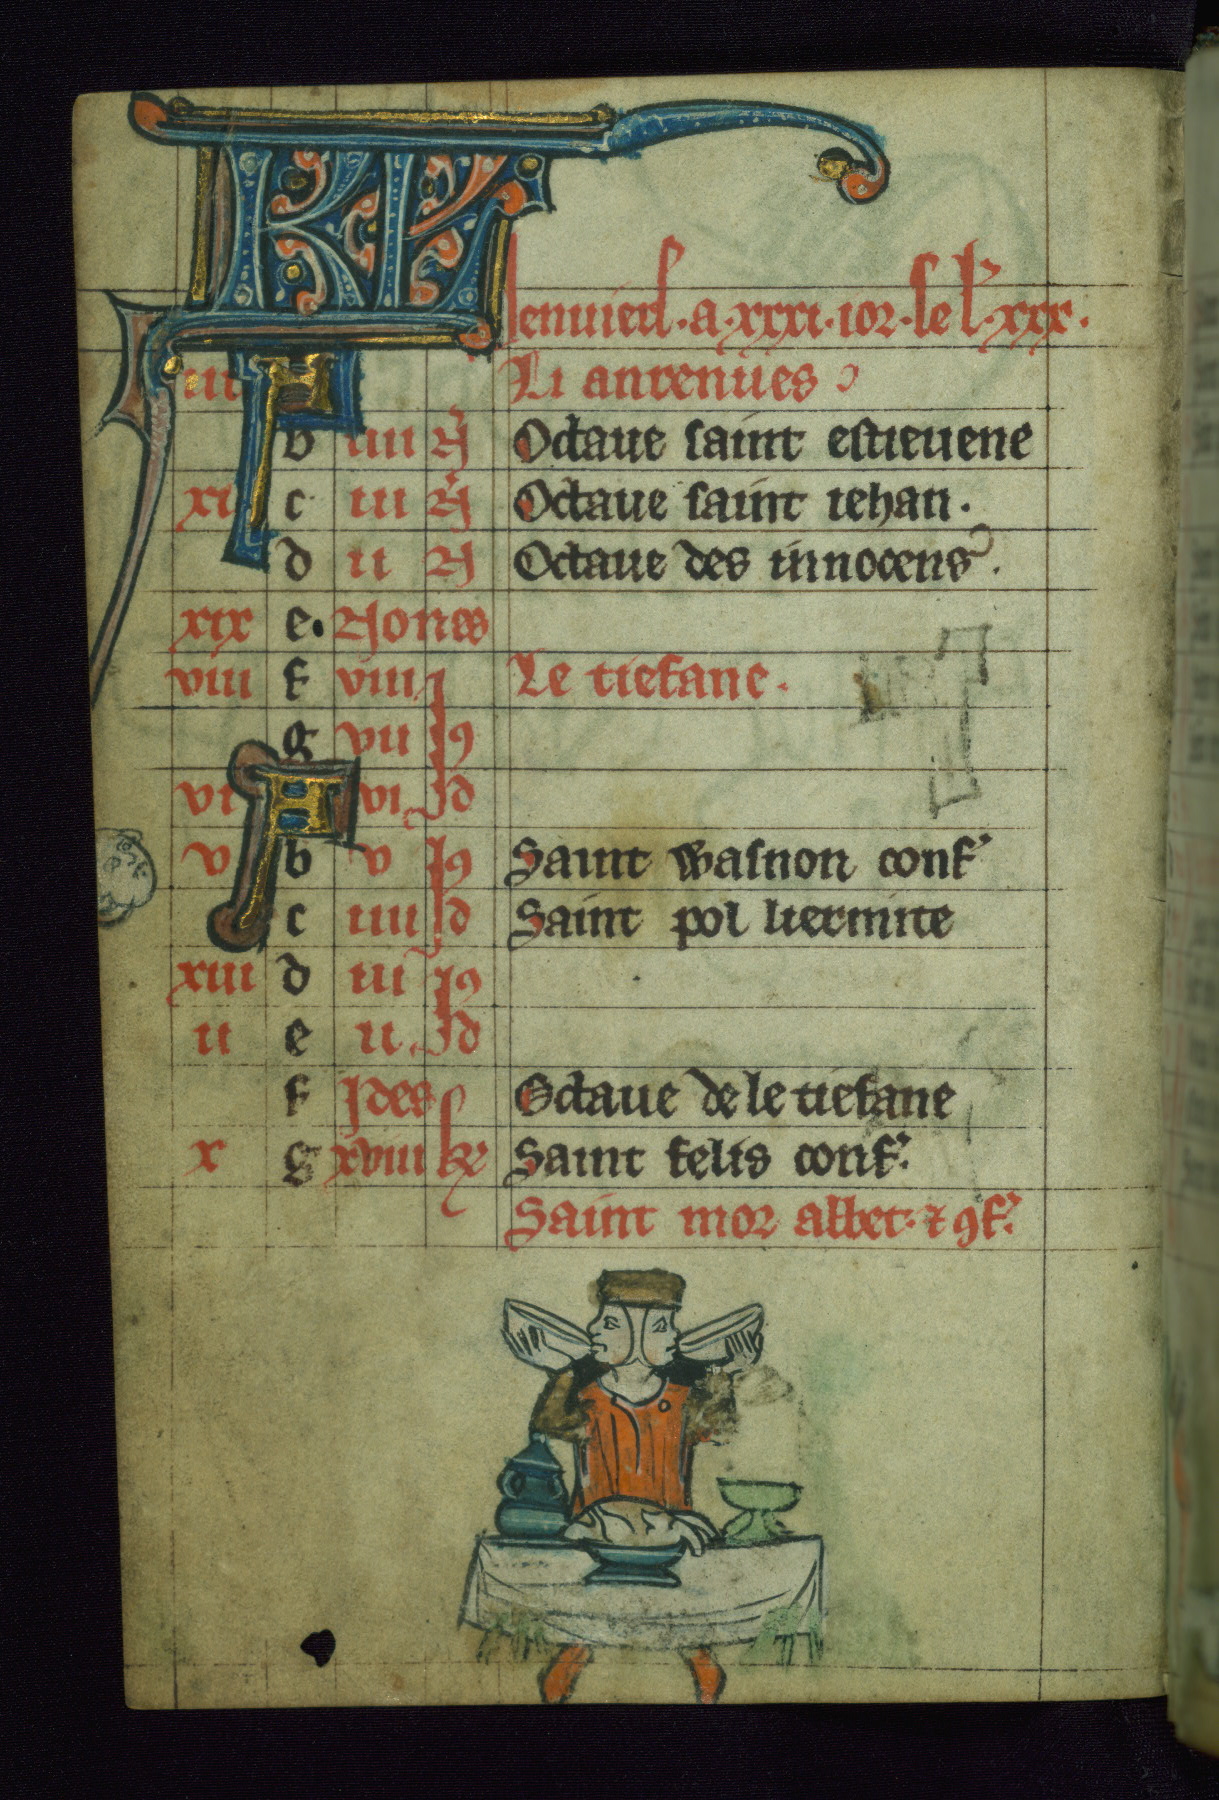 KL Jenvierſ · a · xxxi · ior · le l' · xxx ·
iii A Li anrenues
b iiii N Octave saint estievene
xi c iii N Octave saint iehan .
d ii N Octave des innocens .
xix e . Nones
viii f viii I Le tiefane .
g vii Id
vi A vi Id
v b v Id Saint wasnon conf'
c iiii Id Saint pol liermite
xiii d iii Id
ii e ii . Id
f Ides Octave de le tiefane
x g xviii kl Saint felis conf' .
Saint mor abbet · ⁊ ꝯf' .